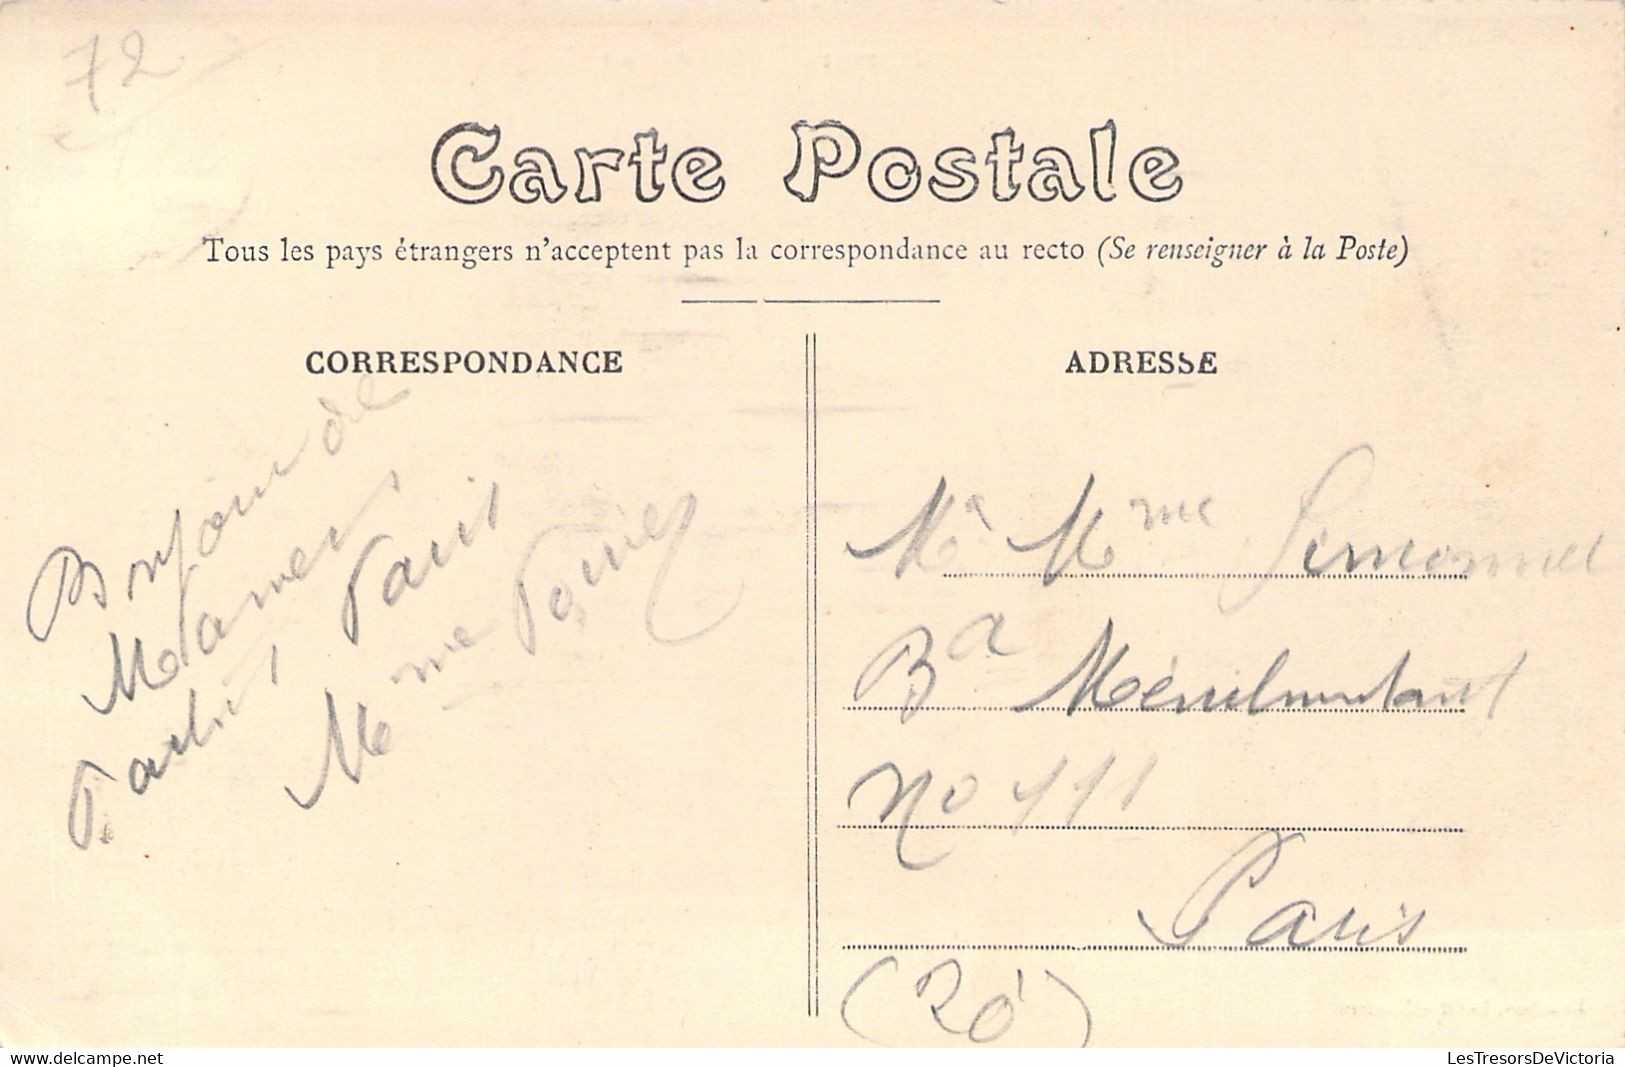 72
Carte Postale
Tous les pays étrangers n'acceptent pas la correspondance au recto (Se renseigner à la Poste)
CORRESPONDANCE
Bonjour de
Mamers
Paris
Mme
ADRESSE
Mr Mme Simonnet
Bd Ménilmontant
No 111
Paris
(20)
LesTresorsDeVictoria